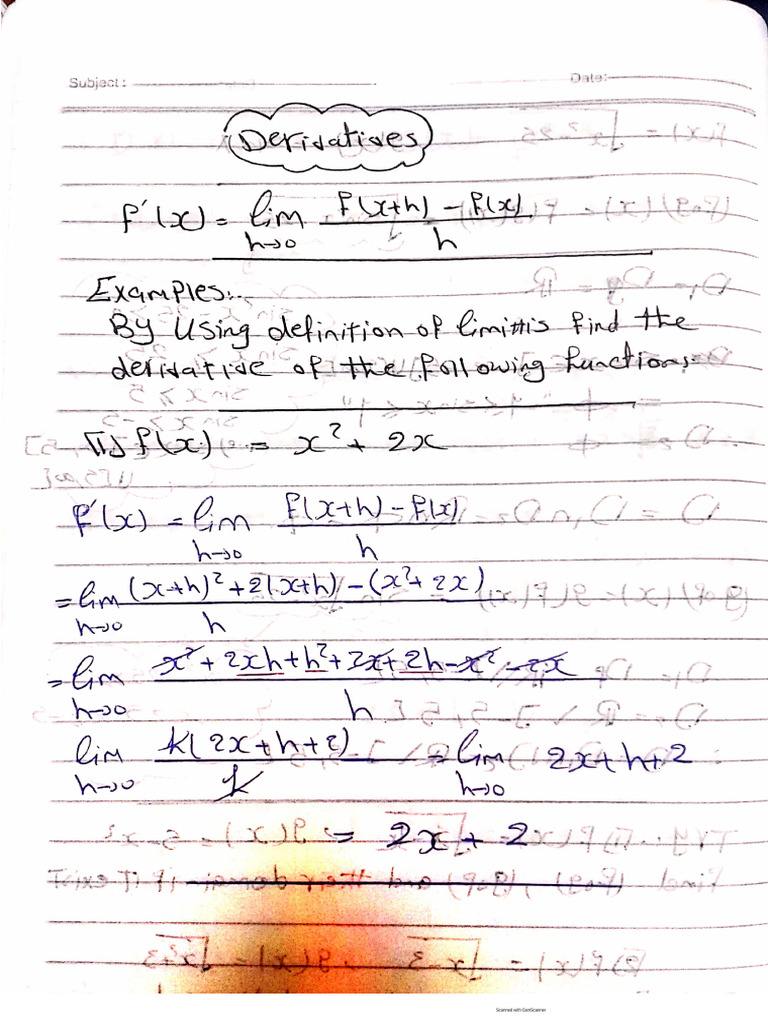 Subject:
Date:
Derivatives
f'(x) = lim h→0 f(x+h) - f(x) / h
Examples:
By Using definition of limittis find the
derivative of the following functions
[1] f(x) = x² + 2x
f'(x) = lim h→0 f(x+h) - f(x) / h
= lim h→0 (x+h)² + 2(x+h) - (x² + 2x) / h
= lim h→0 x² + 2xh + h² + 2x + 2h - x² - 2x / h
lim h→0 h(2x+h+2) / h = lim h→0 2x+h+2
= 2x + 2
Scanned with CamScanner